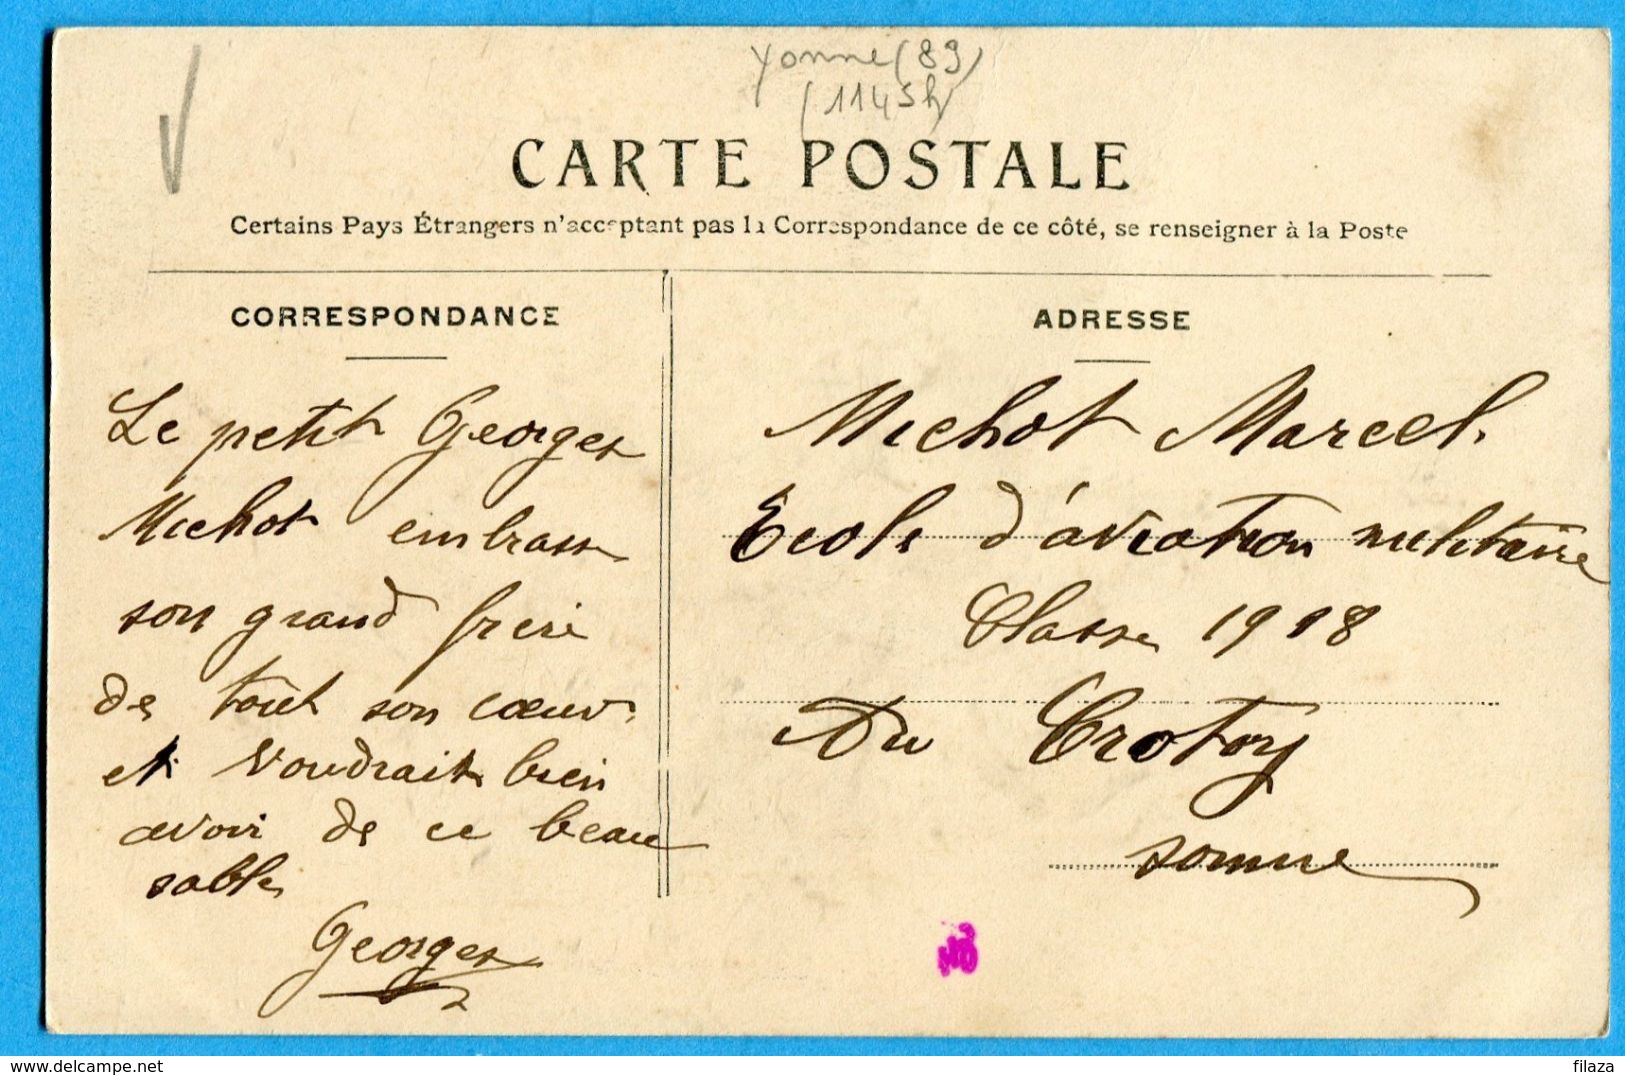 Yonne (89)
(1145h)
CARTE POSTALE
Certains Pays Étrangers n'acceptant pas la Correspondance de ce côté, se renseigner à la Poste
CORRESPONDANCE
Le petit Georges
Michot embrasse
son grand frère
de tout son cœur
et voudrait bien
avoir de ce beau
sable
Georges
ADRESSE
Michot Marcel.
Ecole d'aviation militaire
Classe 1918
Du Crotoy
Somme
www.delcampe.net
filaza